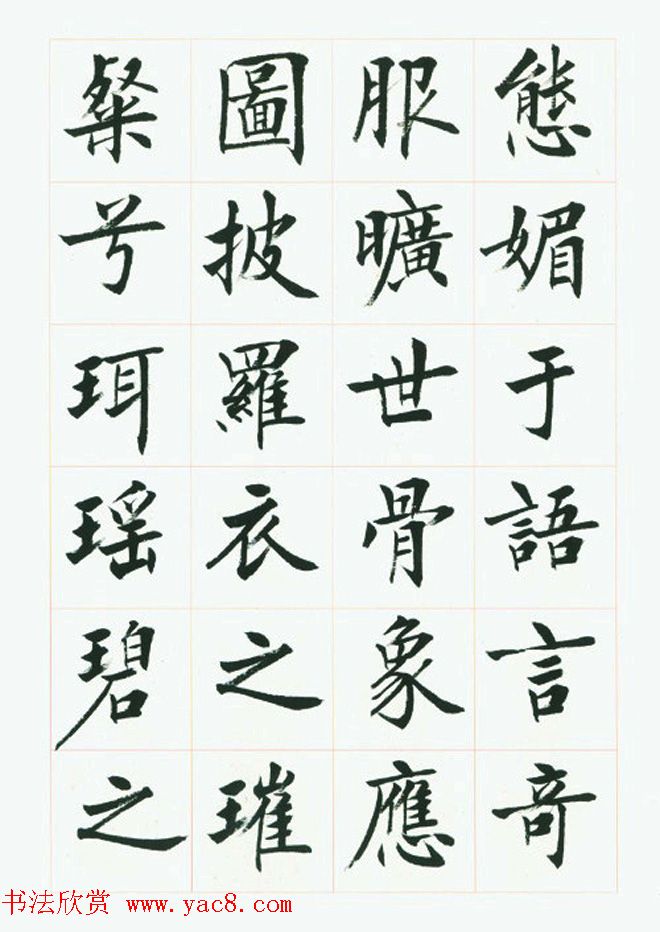 態媚于語言奇
服曠世骨象應
圖披羅衣之璀
粲兮珥瑶碧之
书法欣赏 www.yac8.com